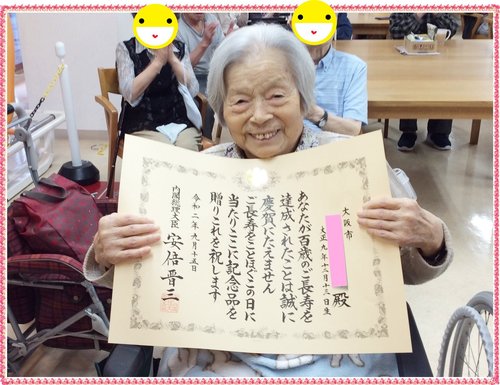 大阪市
殿
大正九年十二月十三日生
あなたが百歳のご長寿を
達成されたことは誠に
慶賀にたえません
ご長寿をことほぐこの日に
当たりここに記念品を
贈りこれを祝します
令和二年九月十五日
内閣総理大臣 安倍晋三